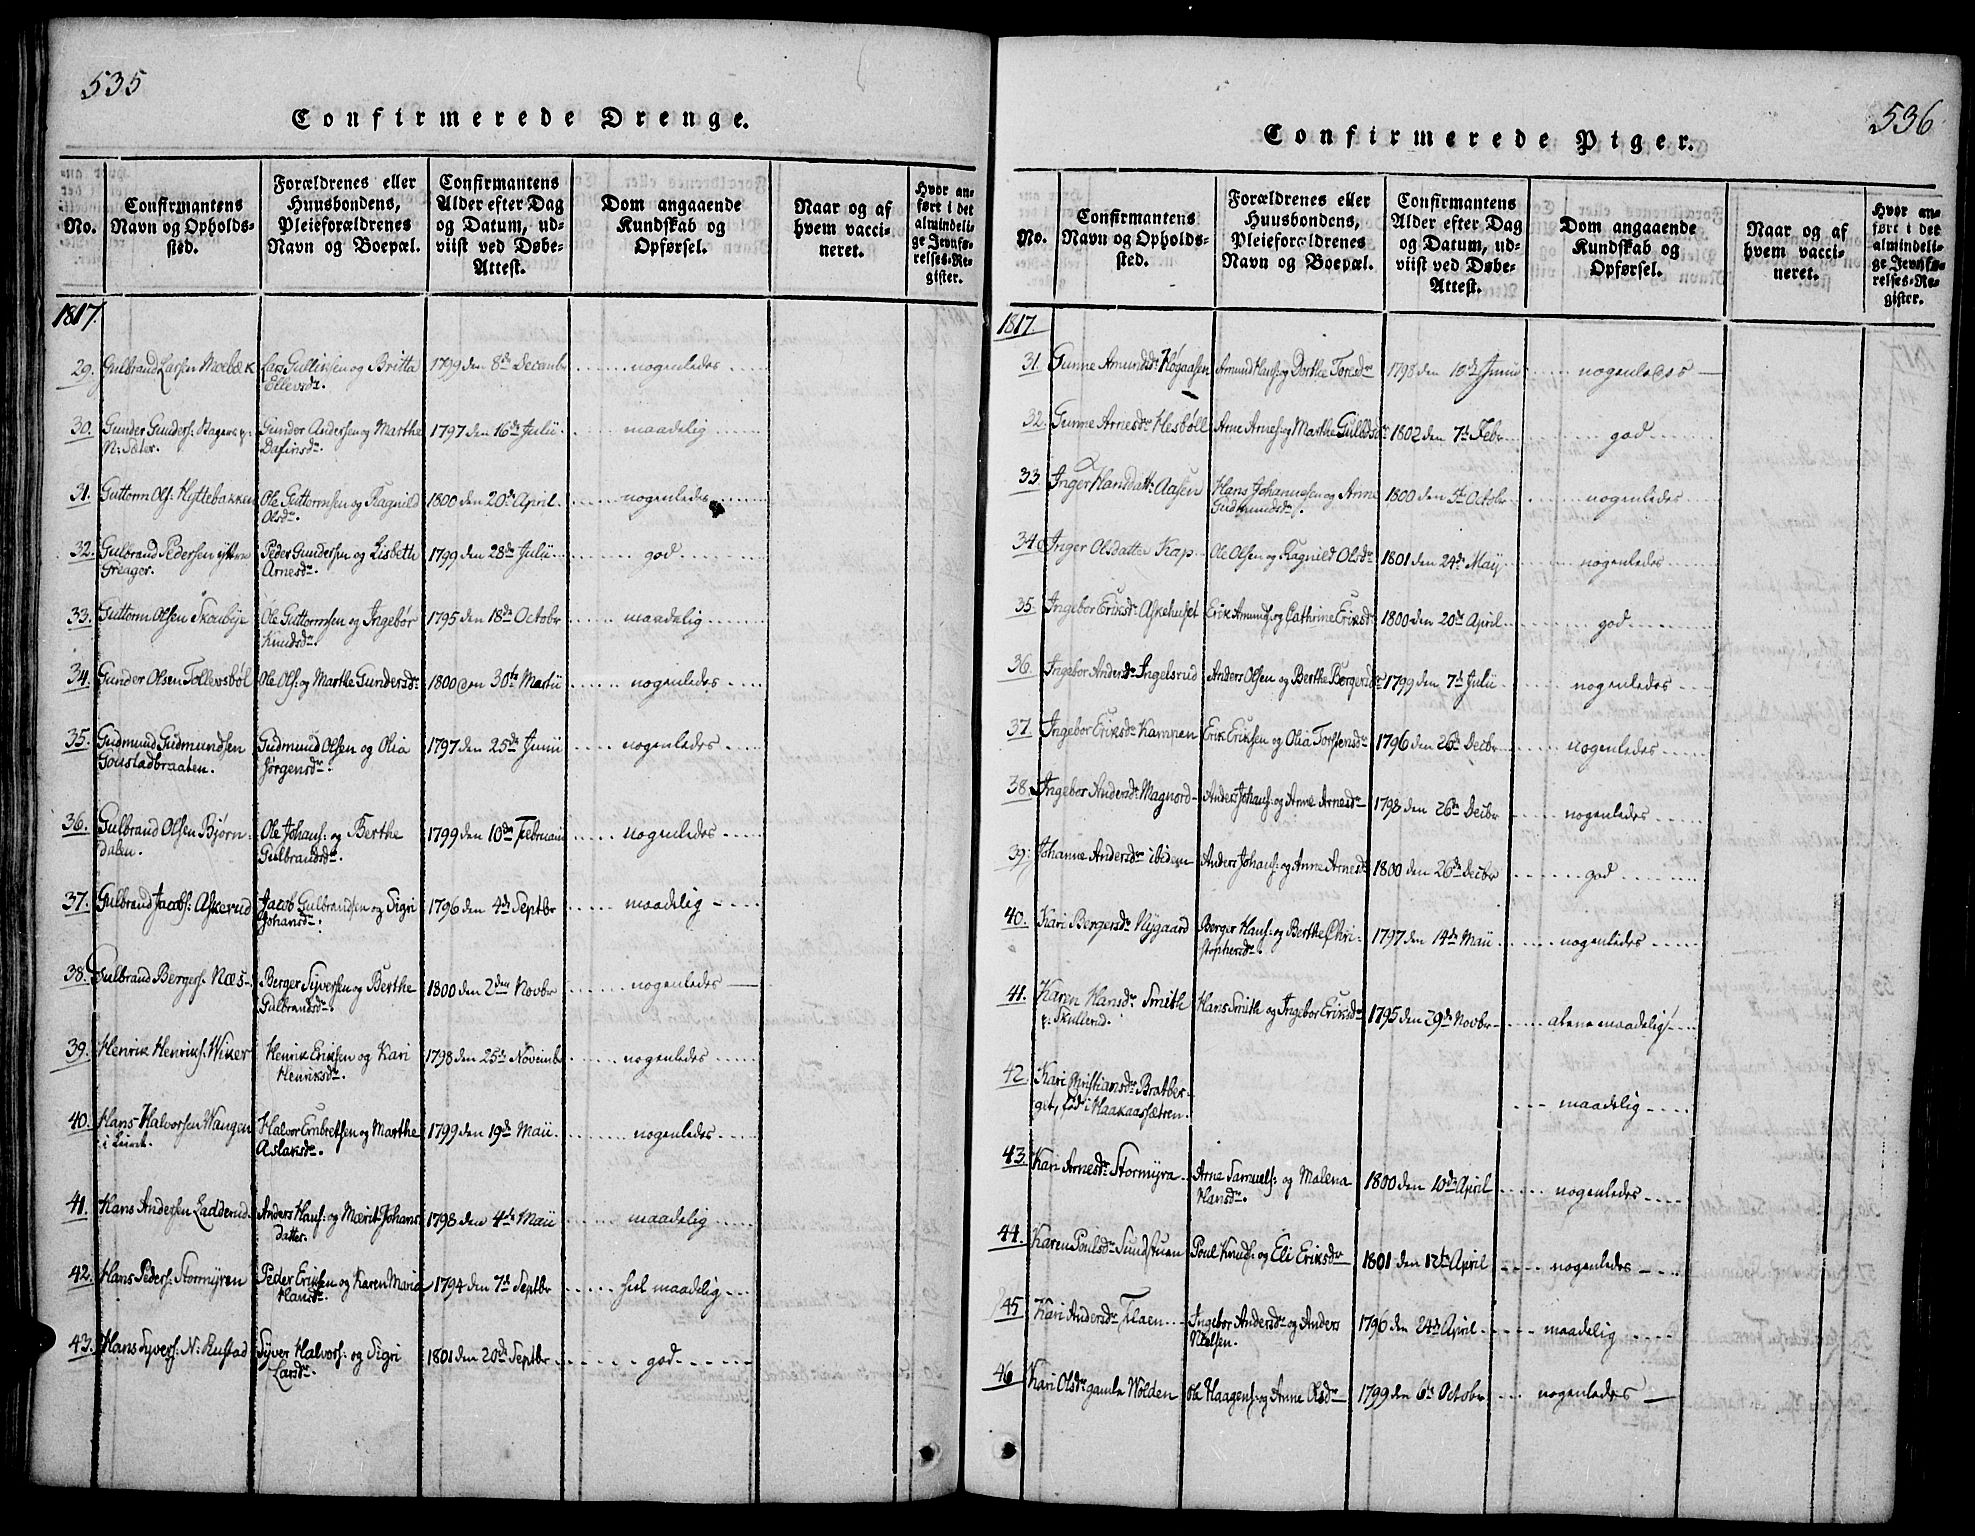 535
Confirmerede Drenge.
No.
Confirmantens
Navn og Opholds-
sted.
Forældrenes eller
Huusbondens,
Pleieforældrenes
Navn og Boepæl.
Confirmantens
Alder efter Dag
og Datum, ud-
viist ved Døbe-
Attest.
Dom angaaende
Kundskab og
Opførsel.
Naar og af
hvem vacci-
neret.
Hvor an-
ført i det
almindeli-
ge Jevnfø-
relses-Re-
gister.
1817.
29. Gulbrand Larsen Moebæk Lars Gullicksen og Britta 1799 den 8de Decembr nogenledes
Ellevsdr.
30. Gunder Gunders: Gunder Andersen og Marthe 1797 den 16de Julii maadelig
N: Sæter. Dafinsdr.
31. Guttorm Ols: Hyttebakken Ole Guttormsen og Ragnild 1800 den 20de April nogenledes
Olsdr.
32. Gulbrand Pedersen yttere Peder Gundersen og Lisbeth 1799 den 28de Julii god
Greager. Arnesdr.
33. Guttorm Olsen Skoubye Ole Guttormsen og Ingebør 1795 den 18de Octobr maadelig
Knudsdr.
34. Gunder Olsen Tollevsbøl Ole Ols: og Marthe Gundersdr. 1800 den 30te Martii nogenledes
35. Gudmund Gudmundsen Gudmund Olsen og Olia 1797 den 25de Junii nogenledes
Goustadbraaten. Jørgensdr.
36. Gulbrand Olsen Bjørn- Ole Johans: og Berthe 1799 den 10de Februarii nogenledes
dalen. Gulbrandsdr.
37. Gulbrand Jacobs: Askerud Jacob Gulbrandsen og Sigri 1796 den 4de Septbr maadelig
Johansdr.
38. Gulbrand Bergers: Næs Berger Syversen og Berthe 1800 den 2den Novbr nogenledes
Gulbrandsdr.
39. Henrik Henriks: Wiker Henrik Eriksen og Kari 1798 den 25de Novembr nogenledes
Henriksdr.
40. Hans Halvorsen Wangen Halvor Embretsen og Marthe 1799 den 19de Maii nogenledes
Aslaksdr.
41. Hans Andersen Ladderud Anders Hans: og Mærit Johans 1798 den 4de Maii maadelig
datter.
42. Hans Peders: Stormyren Peder Eriksen og Karen Maria 1794 den 7de Septbr heel maadelig
Hansdr.
43. Hans Syvers: N: Rustad Syver Halvors: og Sigri 1801 den 20de Septbr god
Larsdr.
536
Confirmerede Piger.
No.
Confirmantens
Navn og Opholds-
sted.
Forældrenes eller
Huusbondens,
Pleieforældrenes
Navn og Boepæl.
Confirmantens
Alder efter Dag
og Datum, ud-
viist ved Døbe-
Attest.
Dom angaaende
Kundskab og
Opførsel.
Naar og af
hvem vacci-
neret.
Hvor an-
ført i det
almindeli-
ge Jevnfø-
relses-Re-
gister.
1817.
31. Gunne Amundsdr Høgaasen Amund Hans: og Dorthe Toresdr 1798 den 10de Junii nogenledes
32. Gunne Arnesdr Hesbøll Arne Arnes: og Marthe Gulbdsdr 1802 den 7de Febr god
33. Inger Hansdatt: Aasen Hans Johannesen og Anne 1800 den 5te Octobr nogenledes
Gudmundsd.
34. Inger Olsdatter Kap Ole Olsen og Ragnild Olsdr 1801 den 24de Maij nogenledes
35. Ingebor Eriksdr Askehuset Erik Amunds: og Cathrine Eriksdr 1800 den 20de April god
36. Ingebor Andersdr Ingelsrud Anders Olsen og Berthe Bergersdr 1799 den 7de Julii nogenledes
37. Ingebor Eriksdr Kampen Erik Eriksen og Olia Torstensdr 1796 den 26de Decbr nogenledes
38. Ingebor Andersdr Magnord Anders Johans: og Anne Arnesdr 1798 den 26de Decbr nogenledes
39. Johanne Andersdr ibidem Anders Johans: og Anne Arnesdr 1800 den 26de Decbr god
40. Kari Bergersdr Nygaard Berger Hans: og Berthe Chri- 1797 den 14de Maii nogenledes
stophersdr.
41. Karen Hansdr Smith Hans Smith og Ingebor Eriksdr 1795 den 29de Novbr alene maadelig
p: Skullerud.
42. Kari Christiansdr Bratber-
get, fød i Haakaassætren. maadelig
43. Kari Arnesdr Stormyra Arne Samuels: og Malena 1800 den 10de April nogenledes
Hansdr.
44. Karen Poulsdr Sundstuen Poul Knuds: og Eli Eriksdr 1801 den 12te April nogenledes
45 Kari Andersdr Flaen Ingebor Andersdr og Anders 1796 den 24de April maadelig
Nielsen.
46 Kari Olsdr gamle Wolden Ole Haagens: og Anne Olsdr 1799 den 6te Octobr nogenledes